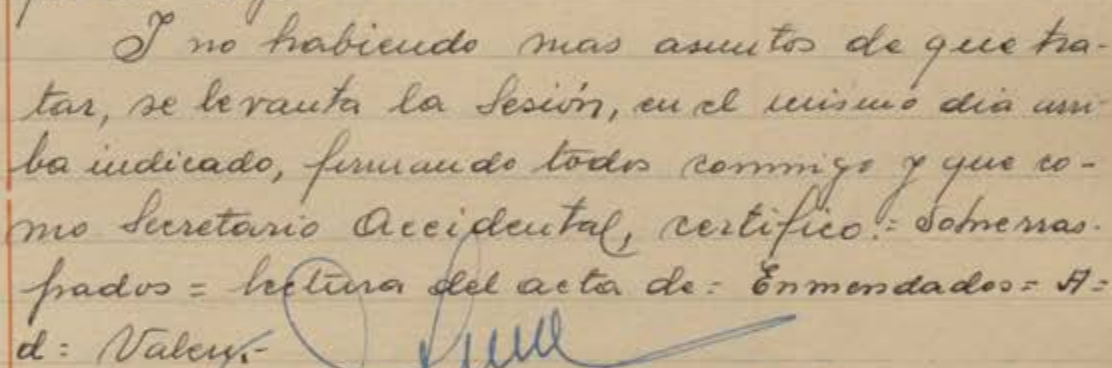 Y no habiendo mas asuntos de que tra-
tar, se levanta la Sesión, en el mismo dia arri
ba indicado, firmando todos conmigo y que co-
mo Secretario Accidental, certifico.= Sobrerras-
pados = lectura del acta de = Enmendados = A =
d = Valen.-